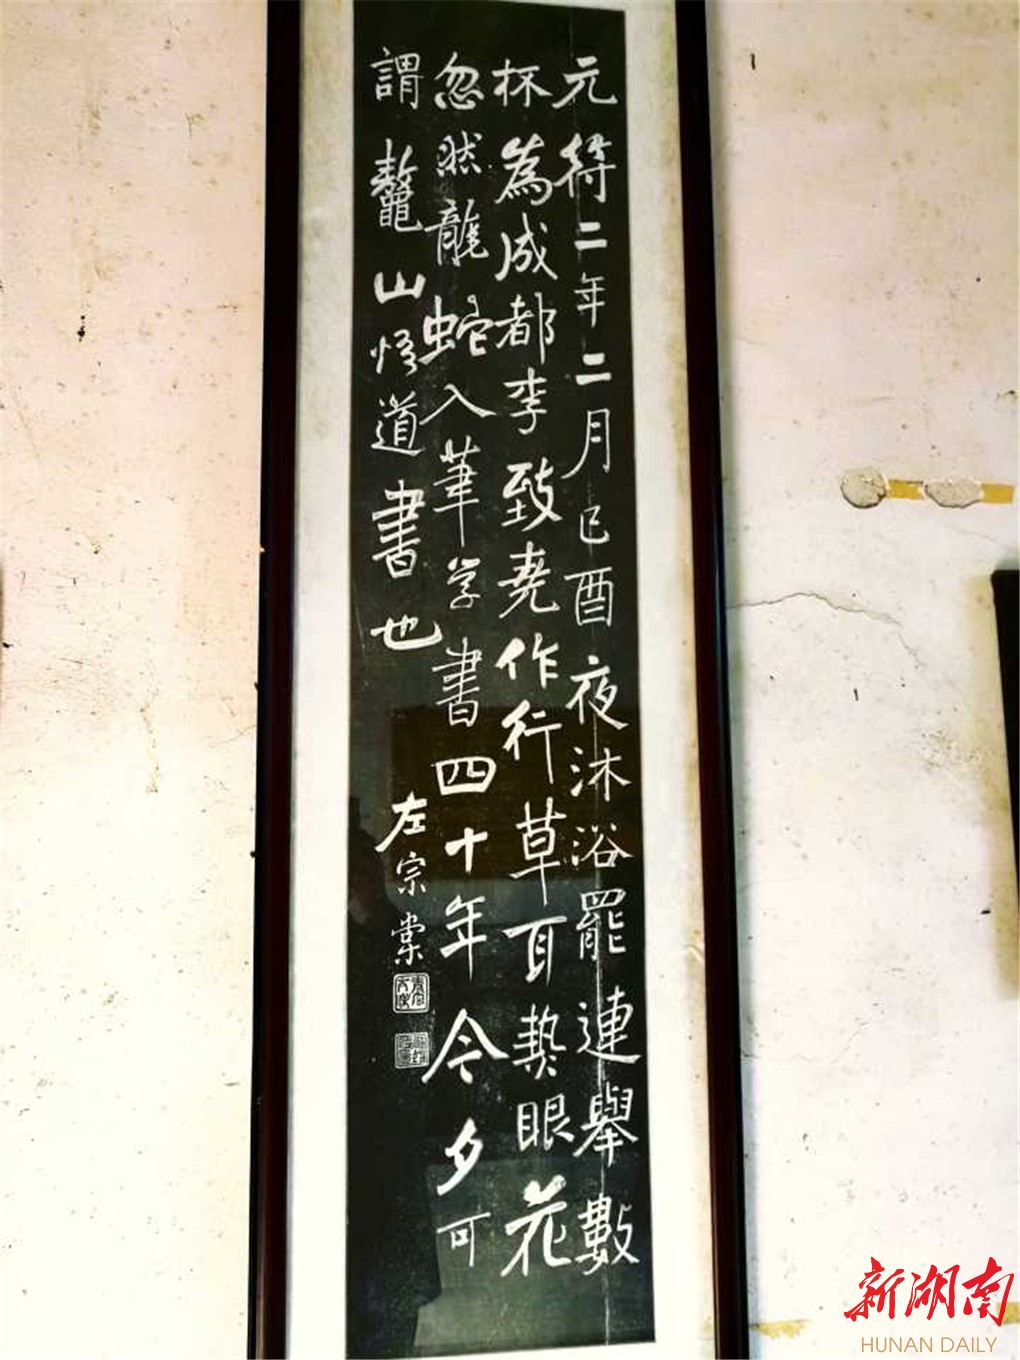 元符二年二月己酉夜沐浴罷連舉數
杯為成都李致堯作行草耳熱眼花
忽然龍蛇入筆学書四十年今夕可
謂鼇山悟道書也
左宗棠
新湖南
HUNAN DAILY